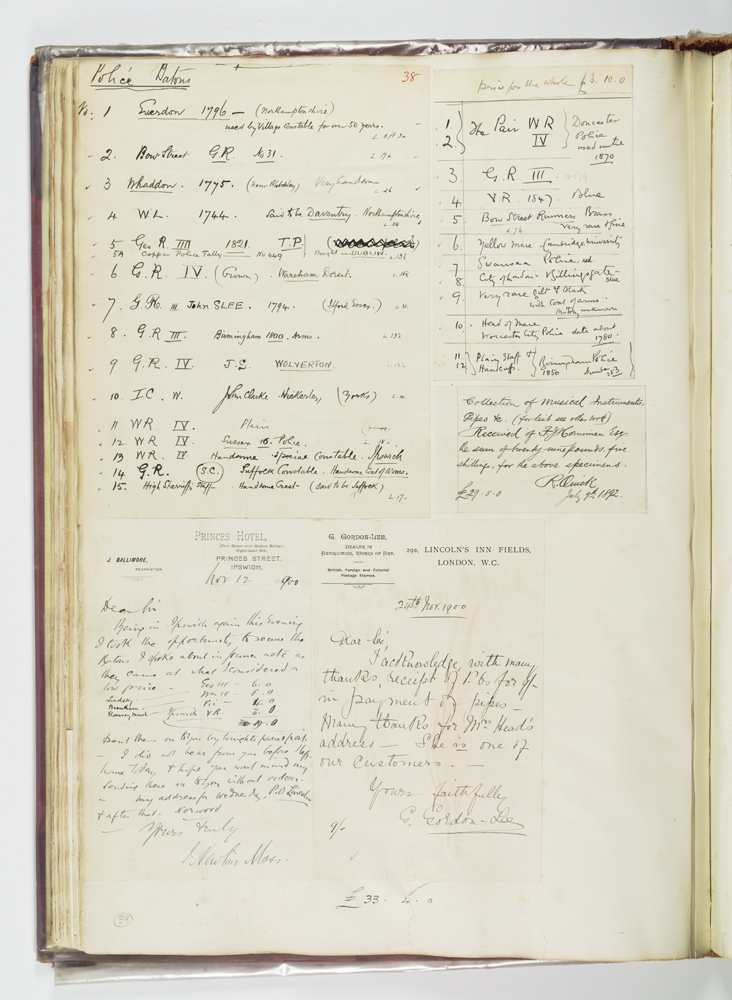 Police Batons
38
No. 1 Everdon 1796 — (Northamptonshire)
used by Village Constable for over 50 years.
2. Bow Street G.R. No 31.
3 Whaddon. 1775. (near Bletchley) Very handsome
4 W L. 1744. Said to be Daventry. Northamptonshire
5 Geo R. III 1821. T.P
5A Copper Police Tally No 449 Bought in DUBLIN.
6 G.R. IV. (Crown) Wareham Dorset.
7. G.R. III John SLEE. 1794. (Ilford, Essex.)
8. G.R III. Birmingham 1800. Arms.
9 G.R. IV. J.S. WOLVERTON.
10. I C. W. John Clarke. (Yorks)
11 WR IV. Plain
12 WR IV. Sussex 16. Police.
13 WR IV. Handsome Special Constable. Ipswich
14 G.R. (S.C.) Suffock Constable. Handsome Coat of arms.
15. High Sherriffs Staff. Handsome Crest (Said to be Suffock)
Price for the whole £3.10.0
1. } The Pair WR } Doncaster
2. } IV } Police
used until
1870
3 G R III.
4 V.R. 1847. Blue
5. Bow Street Runners Brass
very rare & fine
6. Yellow Mace Cambridge University
7 Swansea Police, red
8. City of London Billingsgate blue
9. Very rare gilt & Black
with Coat of arms.
History unknown
10. Head of Mace
Worcester City Police date about
1780.
11. } Plain Staff & } Birmingham Police
12 } Handcuffs } 1850
Collection of Musical Instruments,
Pipes &c. (for list see other book)
Received of F J Horniman Esq.
the sum of twenty nine pounds, five
shillings, for the above specimens.
R. Quick
£29.5.0 July 9th 1892.
PRINCES HOTEL,
(First House over Station Bridge.)
Right-hand Side.
J BALLIMORE,
PROPRIETOR.
PRINCES STREET,
IPSWICH.
Nov 12 1900
Dear Sir
Being in Ipswich again this Evening
I took the opportunity to secure the
Batons I spoke about in former note as
they came at what I considered a
low price —
Geo III — 6.0
Wm IV —
Ipswich VR
Sent them on to you by tonights parcel post.
— I did not hear from you before I left
home today & hope you wont mind my
sending them on to you without orders.
— my address for Wednesday. P.O Lincoln
& after that. Norwood
— Yours truly
Moss.
G. GORDON-LEE.
DEALER IN
ANTIQUITIES, WORKS OF ART.
British, Foreign and Colonial
Postage Stamps.
29B, LINCOLN'S INN FIELDS,
LONDON, W.C.
24th Nov. 1900
Dear Sir,
I acknowledge with many
thanks, receipt of P.O. for 9/-
in payment of pipes —
Many thanks for Mrs Head's
address — She is one of
our customers. —
Yours faithfully
G. Gordon-Lee
9/-
£33. 4. 0
38